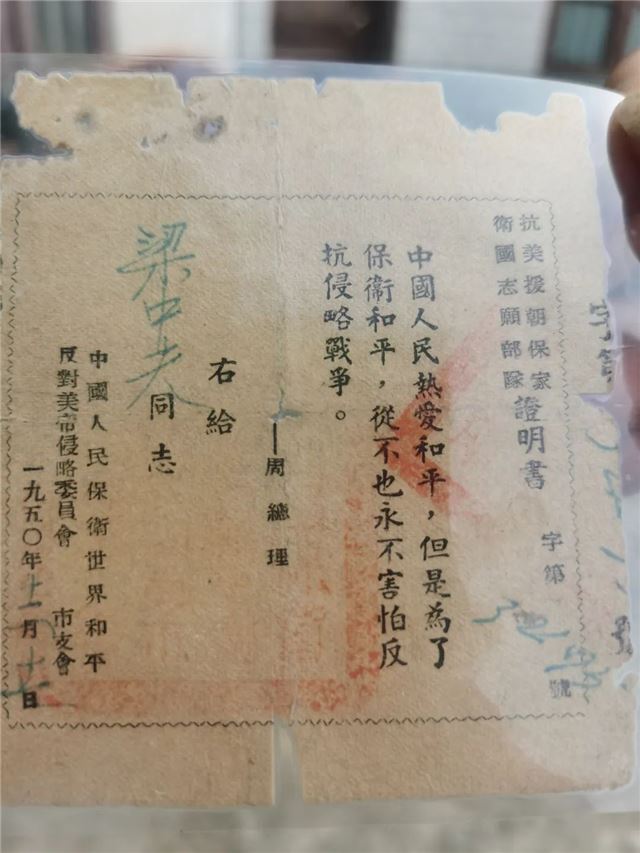 字第
號
抗美援朝保家
衛國志願部隊
證明書
字第 號
中國人民熱愛和平，但是為了
保衞和平，從不也永不害怕反
抗侵略戰爭。
——周總理
右給
梁中 同志
中國人民保衛世界和平
反對美帝侵略委員會 市支會
一九五〇年十一月 日